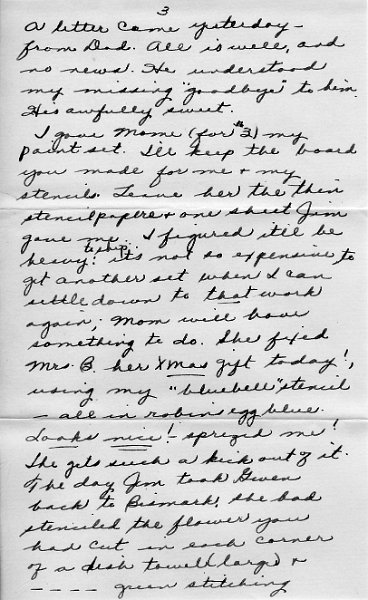 3
A letter came yesterday -
from Dad. All is well, and
no news. He understood
my missing "goodbye" to him.
He's awfully sweet.
I gave Mome (for $2) my
paint set. I'll keep the board
you made for me & my
stencils. Leave her the thin
stencil papere & one sheet Jim
gave me. I figured it'll be
heavy to ship. It's not so expensive to
get another set when I can
settle down to that work
again; Mom will have
something to do. She fixed
Mrs. B. her XMas gift today!,
using my "bluebell" stencil
- all in robin egg blue.
Looks nice! - sprized me!
She gets such a kick out of it.
The day Jim took Gwen
back to Bismark, she had
stenciled the flower you
had cut in each corner
of a dish towel (large) &
- - - - green stitching